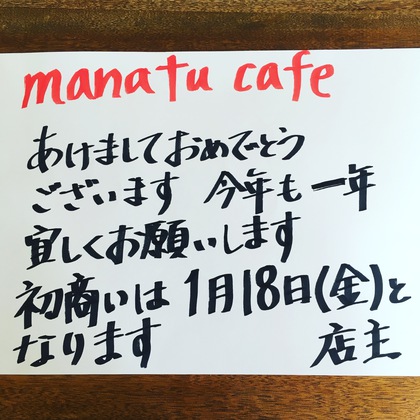 manatu cafe
あけましておめでとう
ございます 今年も一年
宜しくお願いします
初商いは1月18日(金)と
なります 店主